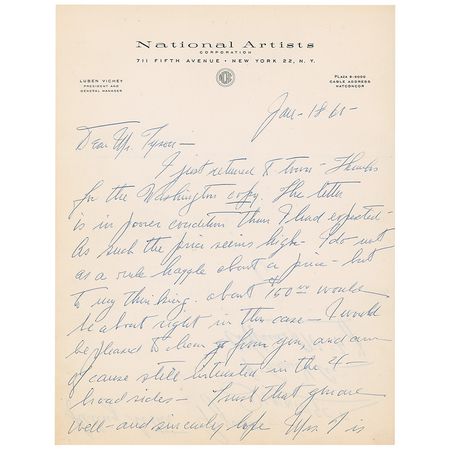 National Artists
CORPORATION
711 FIFTH AVENUE • NEW YORK 22, N. Y.
LUBEN VICHEY
PRESIDENT AND
GENERAL MANAGER
PLAZA 9-6000
CABLE ADDRESS
NATCONCOR
Jan - 18 60 -
Dear Mr. Tyson -
I just returned to town - Thanks
for the Washington copy. The letter
is in poorer condition than I had expected -
As such the price seems high - I do not
as a rule haggle about a price - but
to my thinking - about $150.00 would
be about right in this case - I would
be pleased to hear from you, and am
of cause still interested in the 4 -
broad sides - Trust that you are
well - and sincerely hope Mrs. T is